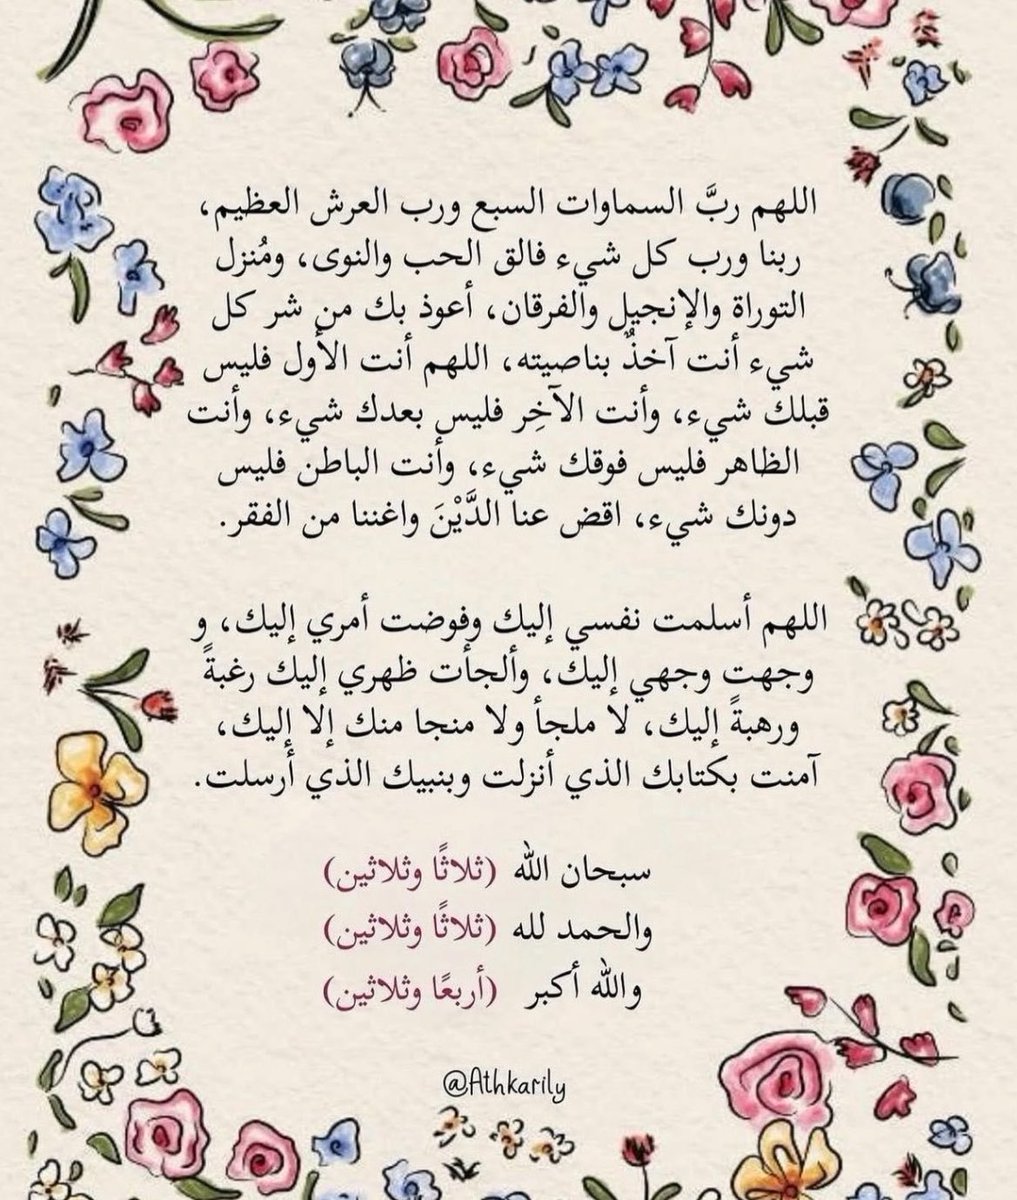 اللهم ربَّ السماوات السبع ورب العرش العظيم،
ربنا ورب كل شيء فالق الحب والنوى، ومُنزل
التوراة والإنجيل والفرقان، أعوذ بك من شر كل
شيء أنت آخذٌ بناصيته، اللهم أنت الأول فليس
قبلك شيء، وأنت الآخِر فليس بعدك شيء، وأنت
الظاهر فليس فوقك شيء، وأنت الباطن فليس
دونك شيء، اقض عنا الدَّيْنَ واغننا من الفقر.
اللهم أسلمت نفسي إليك وفوضت أمري إليك، و
وجهت وجهي إليك، وألجأت ظهري إليك رغبةً
ورهبةً إليك، لا ملجأ ولا منجا منك إلا إليك،
آمنت بكتابك الذي أنزلت وبنبيك الذي أرسلت.
سبحان الله (ثلاثًا وثلاثين)
والحمد لله (ثلاثًا وثلاثين)
والله أكبر (أربعًا وثلاثين)
@Athkarily